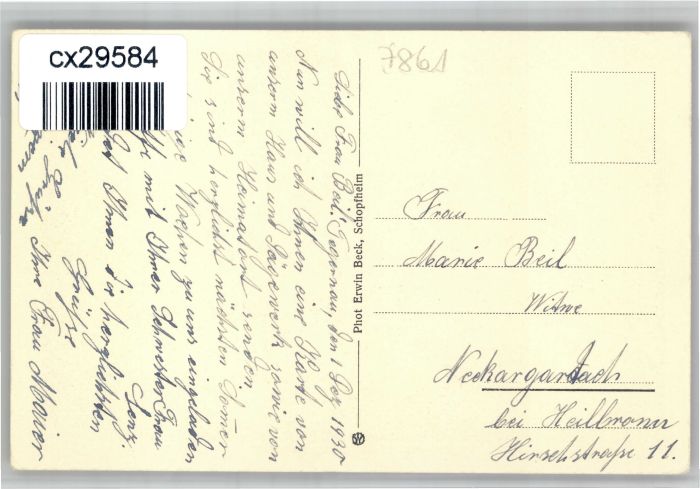 cx29584
7861
Liebe Frau Beil! Tegernau, den 1 Dez 1930
Nun will ich Ihnen eine Karte von
unserm Haus und Sägewerk sowie von
unserm Heimatort senden.
Sie sind herzlichst nächsten Sommer
Wochen zu uns eingeladen
mit Ihrer Schwester Frau
Lenz.
Ihnen die herzlichsten
Grüße
Ihre Frau Maier
Grüße
Phot Erwin Beck, Schopfheim
Frau
Marie Beil
Witwe
Neckargartach
bei Heilbronn
Hirschstraße 11.